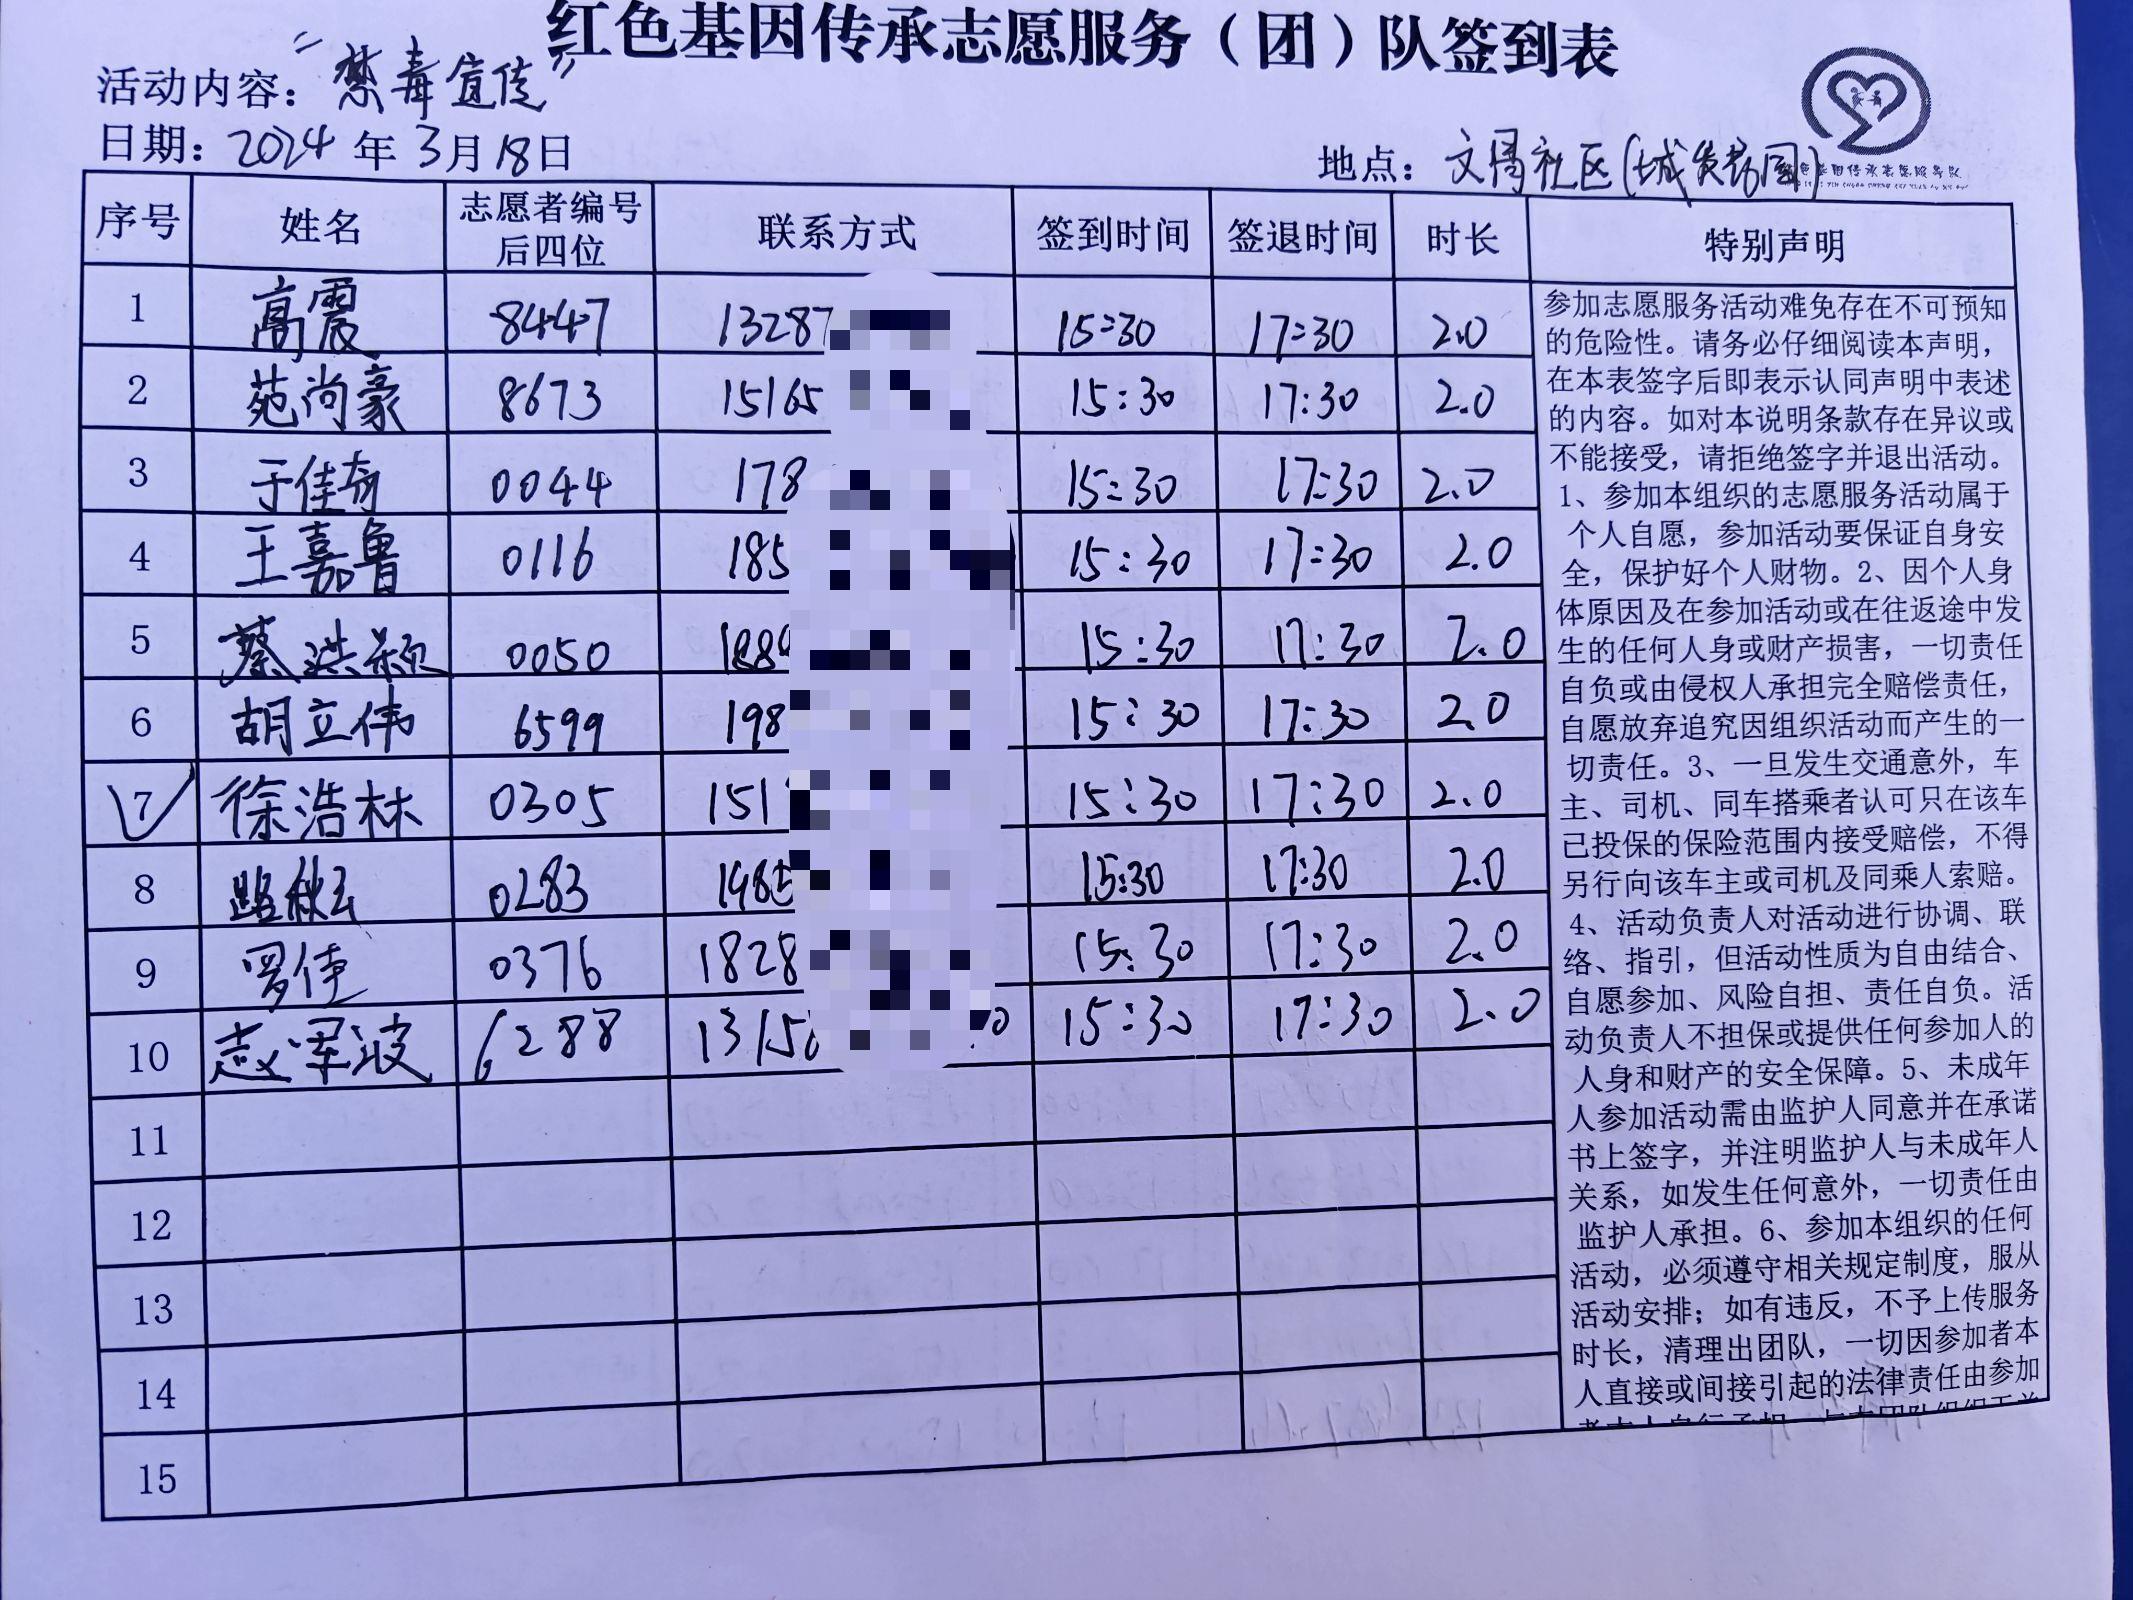 红色基因传承志愿服务（团）队签到表
活动内容：“禁毒宣传”
日期：2024年3月18日
地点：文 社区(城发 园)
序号 姓名 志愿者编号后四位 联系方式 签到时间 签退时间 时长 特别声明
1 高震 8447 13287 15:30 17:30 2.0
2 苑尚豪 8673 15165 15:30 17:30 2.0
3 于佳奇 0044 178 15:30 17:30 2.0
4 王嘉鲁 0116 185 15:30 17:30 2.0
5 蔡洪颖 0050 188 15:30 17:30 2.0
6 胡立伟 6599 198 15:30 17:30 2.0
7 徐浩林 0305 151 15:30 17:30 2.0
8 路 0283 15:30 17:30 2.0
9 罗佳 0376 1828 15:30 17:30 2.0
10 赵军波 6288 1315 0 15:30 17:30 2.0
11
12
13
14
15
参加志愿服务活动难免存在不可预知
的危险性。请务必仔细阅读本声明，
在本表签字后即表示认同声明中表述
的内容。如对本说明条款存在异议或
不能接受，请拒绝签字并退出活动。
1、参加本组织的志愿服务活动属于
个人自愿，参加活动要保证自身安
全，保护好个人财物。2、因个人身
体原因及在参加活动或在往返途中发
生的任何人身或财产损害，一切责任
自负或由侵权人承担完全赔偿责任，
自愿放弃追究因组织活动而产生的一
切责任。3、一旦发生交通意外，车
主、司机、同车搭乘者认可只在该车
已投保的保险范围内接受赔偿，不得
另行向该车主或司机及同乘人索赔。
4、活动负责人对活动进行协调、联
络、指引，但活动性质为自由结合、
自愿参加、风险自担、责任自负。活
动负责人不担保或提供任何参加人的
人身和财产的安全保障。5、未成年
人参加活动需由监护人同意并在承诺
书上签字，并注明监护人与未成年人
关系，如发生任何意外，一切责任由
监护人承担。6、参加本组织的任何
活动，必须遵守相关规定制度，服从
活动安排；如有违反，不予上传服务
时长，清理出团队，一切因参加者本
人直接或间接引起的法律责任由参加